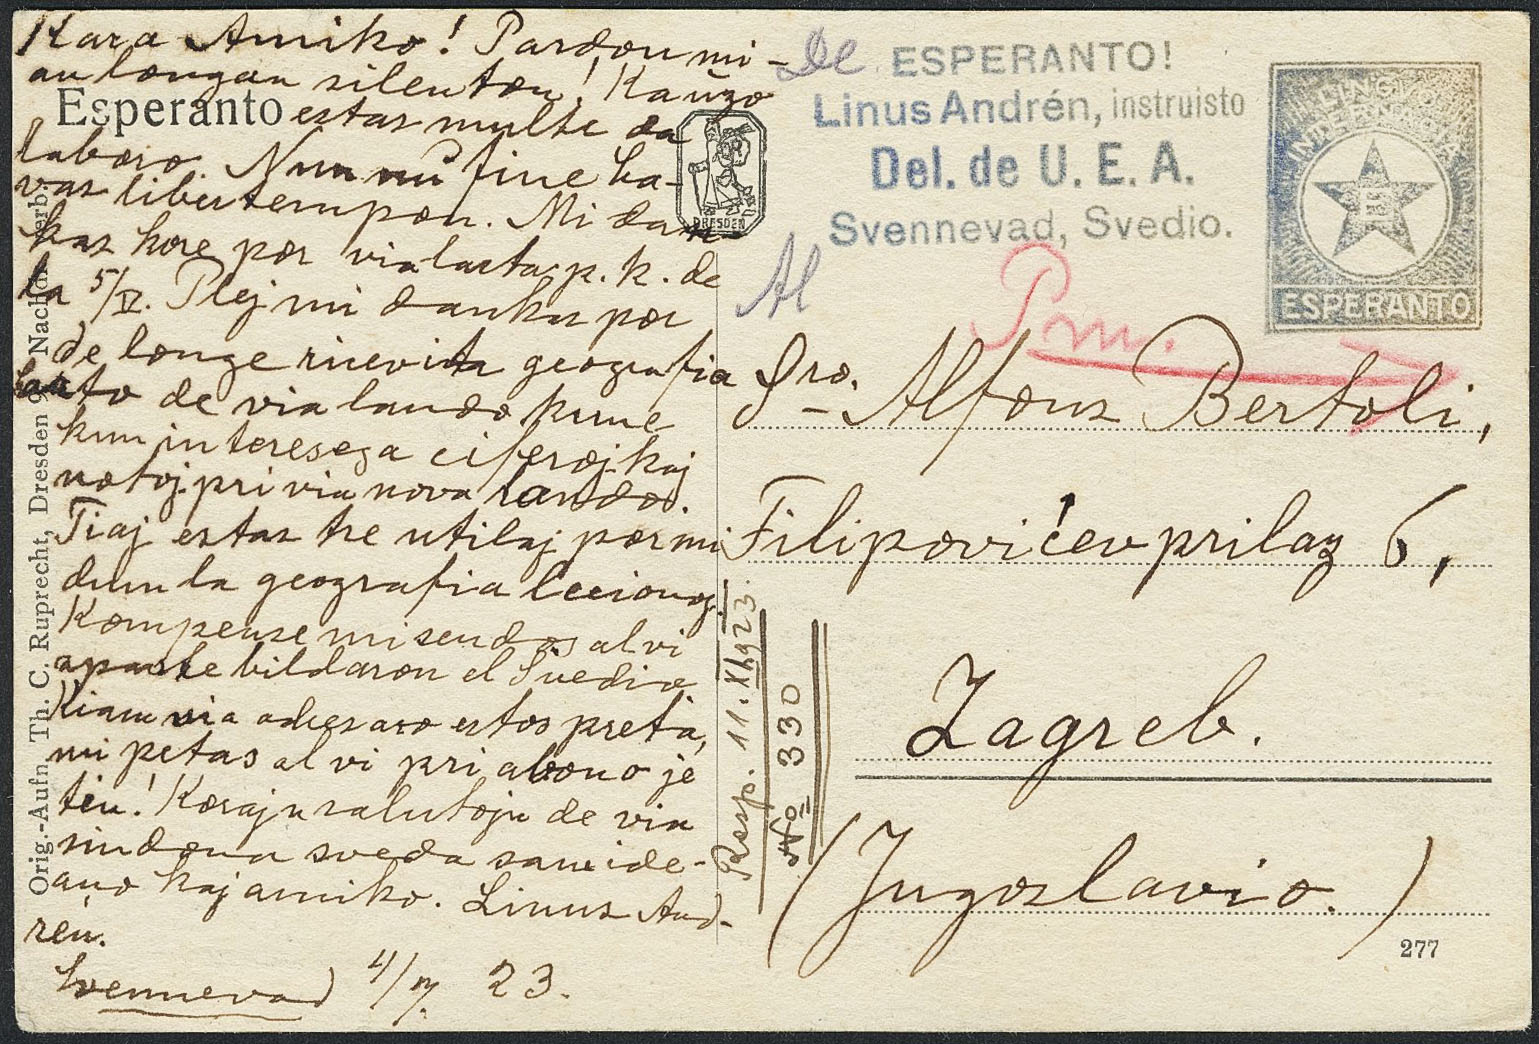 Kara Amiko! Pardonu mi-
an longan silenton! Kaŭzo
Esperanto
estas multe da
laboro. Nun mi fine ha-
vas libertempon. Mi dan-
kas kore por via lasta p. k. de
la 5/IV. Plej mi dankas por
de longe ricevita geografia
karto de via lando kune
kun interesega ciferoj kaj
notoj pri via nova lando.
Tiaj estas tre utilaj por mi
dum la geografia lecionoj.
Kompense mi sendos al vi
aparte bildaron el Svedio
Kiam via adresaro estos preta,
mi petas al vi pri abono je
ĝin! Korajn salutojn de via
sindona sveda samide-
ano kaj amiko. Linus And-
rén.
Svennevad 4/7. 23.
Orig.-Aufn. Th. C. Ruprecht, Dresden 9, Nachdr. verb.
DRESDEN
De ESPERANTO!
Linus Andrén, instruisto
Del. de U. E. A.
Svennevad, Svedio.
LINGVO
INTERNACIA
E
ESPERANTO
Al
Pm.
S-ro. Alfons Bertoli,
Filipovićev prilaz 6,
Zagreb.
(Jugoslavio.)
Resp. 11. 23.
No 330
277